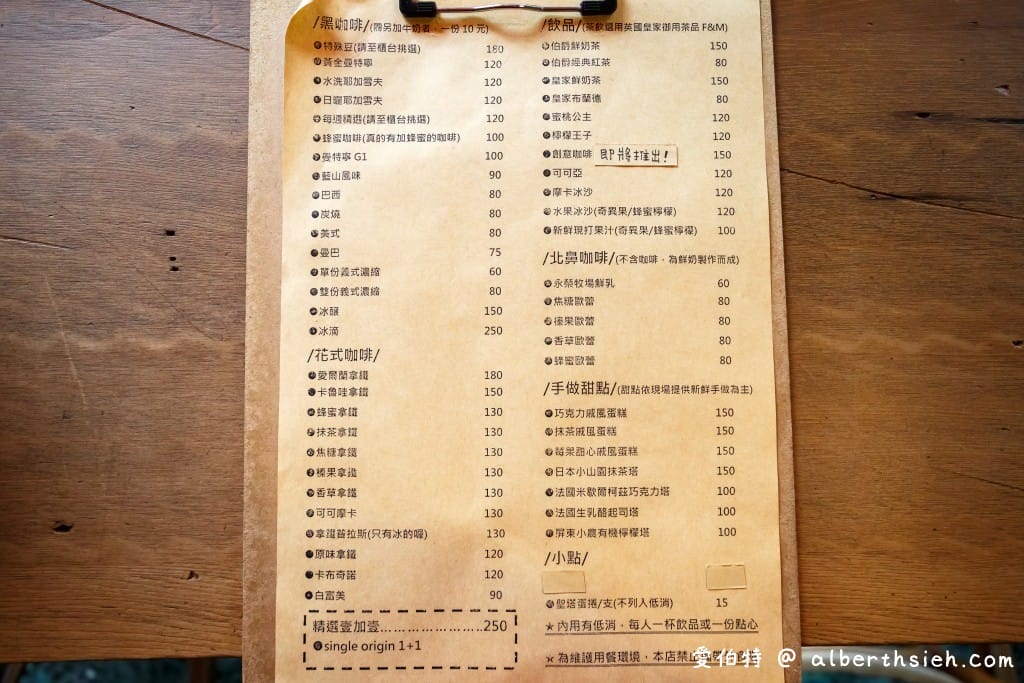 /黑咖啡/(需另加牛奶者，一份 10 元)
特殊豆(請至櫃台挑選) 180
黃金曼特寧 120
水洗耶加雪夫 120
日曬耶加雪夫 120
每週精選(請至櫃台挑選) 120
蜂蜜咖啡(真的有加蜂蜜的咖啡) 100
曼特寧 G1 100
藍山風味 90
巴西 80
炭燒 80
美式 80
曼巴 75
單份義式濃縮 60
雙份義式濃縮 80
冰釀 150
冰滴 250
/花式咖啡/
愛爾蘭拿鐵 180
卡魯哇拿鐵 150
蜂蜜拿鐵 130
抹茶拿鐵 130
焦糖拿鐵 130
榛果拿鐵 130
香草拿鐵 130
可可摩卡 130
拿鐵普拉斯(只有冰的喔) 130
原味拿鐵 120
卡布奇諾 120
白富美 90
精選壹加壹……………………250
single origin 1+1
/飲品/(茶飲選用英國皇家御用茶品 F&M)
伯爵鮮奶茶 150
伯爵經典紅茶 80
皇家鮮奶茶 150
皇家布蘭德 80
蜜桃公主 120
檸檬王子 120
創意咖啡 即將推出! 150
可可亞 120
摩卡冰沙 120
水果冰沙(奇異果/蜂蜜檸檬) 120
新鮮現打果汁(奇異果/蜂蜜檸檬) 100
/北鼻咖啡/(不含咖啡，為鮮奶製作而成)
永榮牧場鮮乳 60
焦糖歐蕾 80
榛果歐蕾 80
香草歐蕾 80
蜂蜜歐蕾 80
/手做甜點/(甜點依現場提供新鮮手做為主)
巧克力戚風蛋糕 150
抹茶戚風蛋糕 150
莓果甜心戚風蛋糕 150
日本小山園抹茶塔 150
法國米歇爾柯茲巧克力塔 100
法國生乳酪起司塔 100
屏東小農有機檸檬塔 100
/小點/
聖塔蛋捲/支(不列入低消) 15
★內用有低消，每人一杯飲品或一份點心
★為維護用餐環境，本店禁止
愛伯特 @ alberthsieh.com